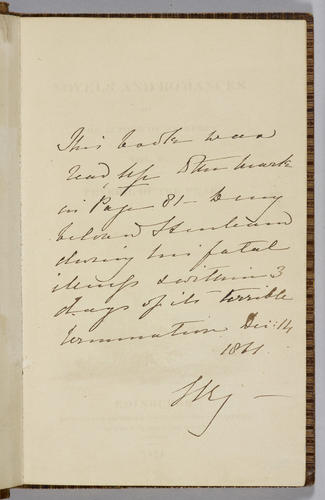 NOVELS AND ROMANCES
This book was
read up to the mark
in Page 81 – to my
beloved Husband
during his fatal
illness & within 3
days of its terrible
termination Dec: 14
1861